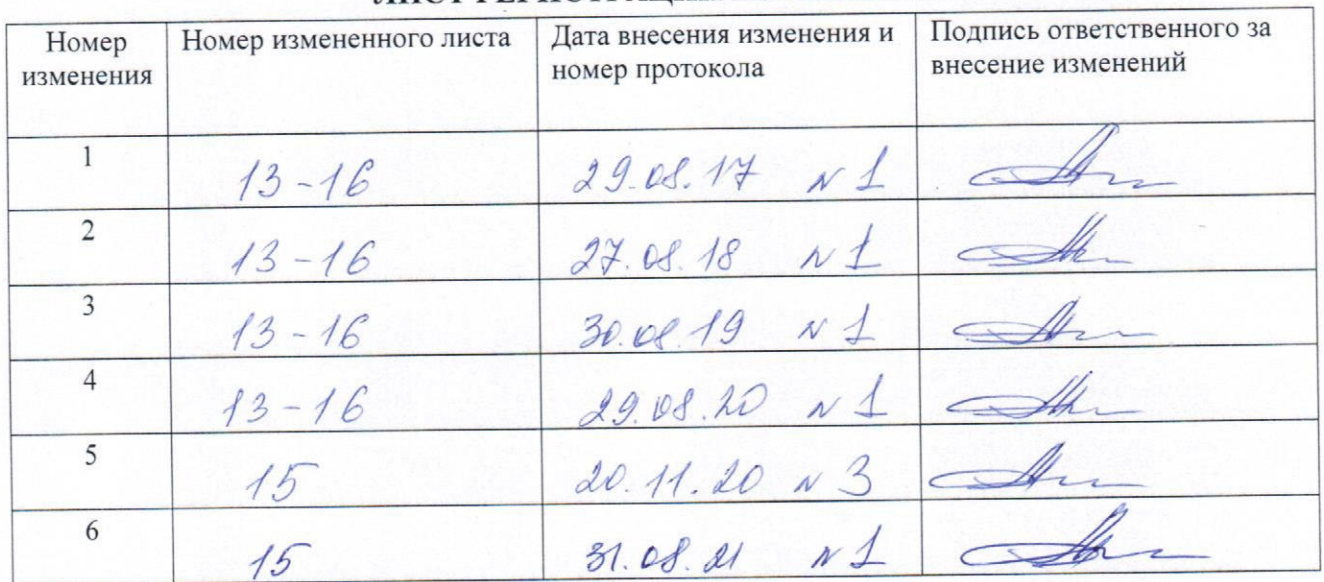 Номер изменения Номер измененного листа Дата внесения изменения и номер протокола Подпись ответственного за внесение изменений
1 13-16 29.08.17 №1
2 13-16 27.08.18 №1
3 13-16 30.08.19 №1
4 13-16 29.08.20 №1
5 15 20.11.20 №3
6 15 31.08.21 №1